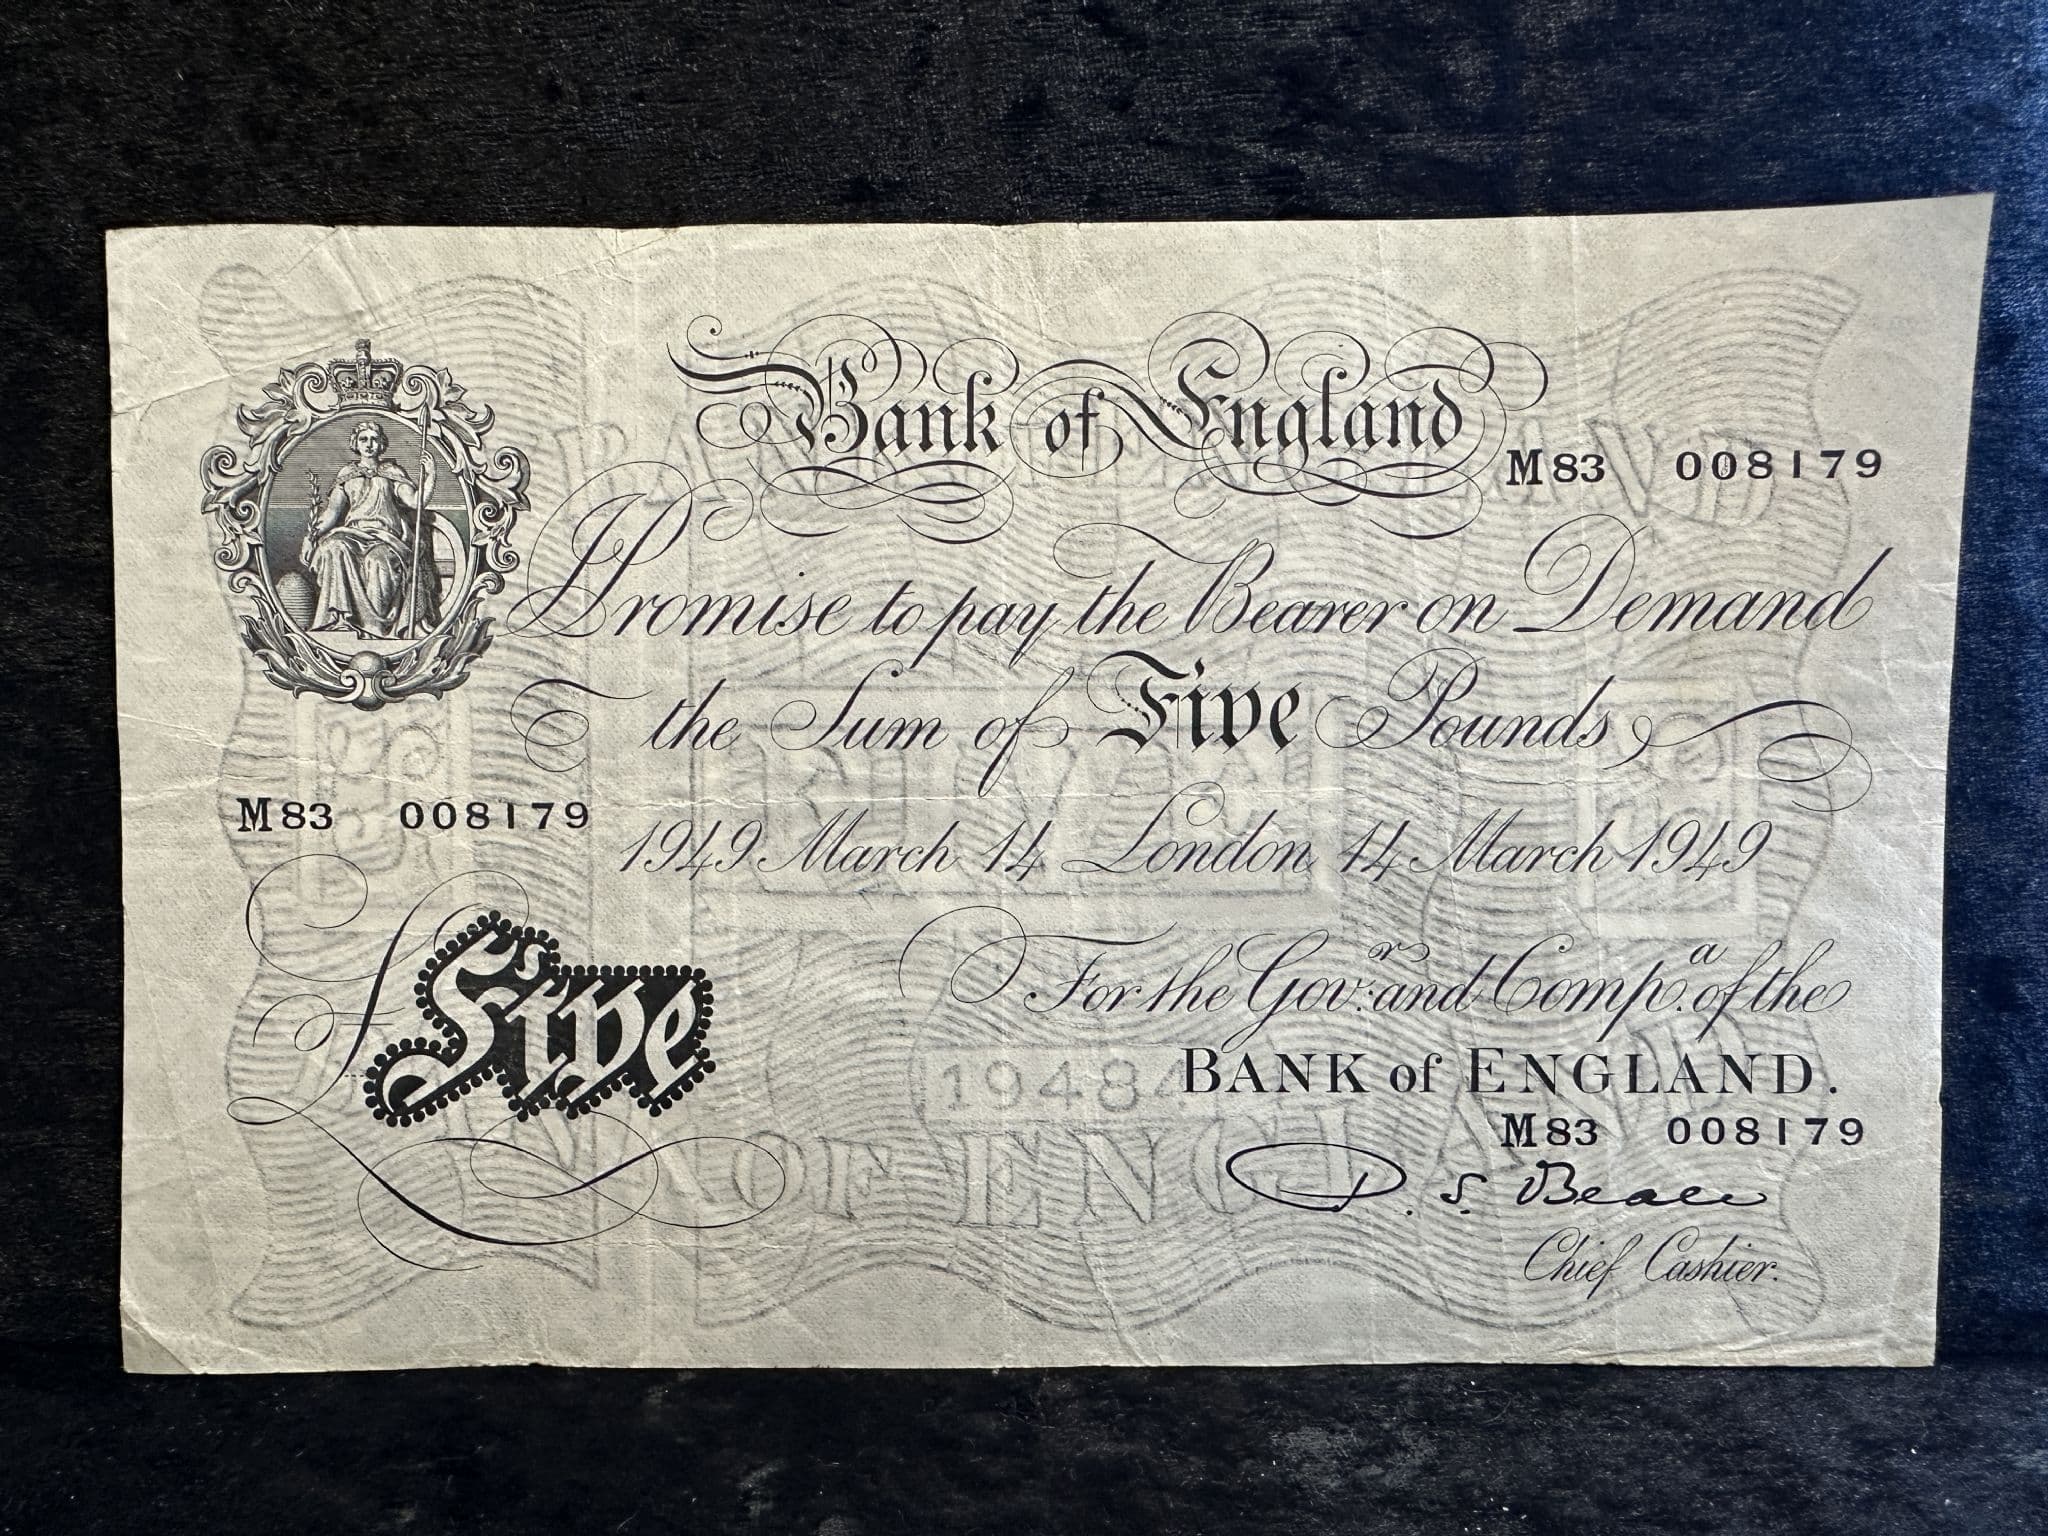 Bank of England
M83 008179
I Promise to pay the Bearer on Demand
the Sum of Five Pounds
M83 008179
1949 March 14 London 14 March 1949
For the Gov.r and Comp.a of the
£Five
BANK of ENGLAND.
M83 008179
P. S. Beale
Chief Cashier.
BANK OF ENGLAND
FIVE
1948
BANK OF ENGLAND